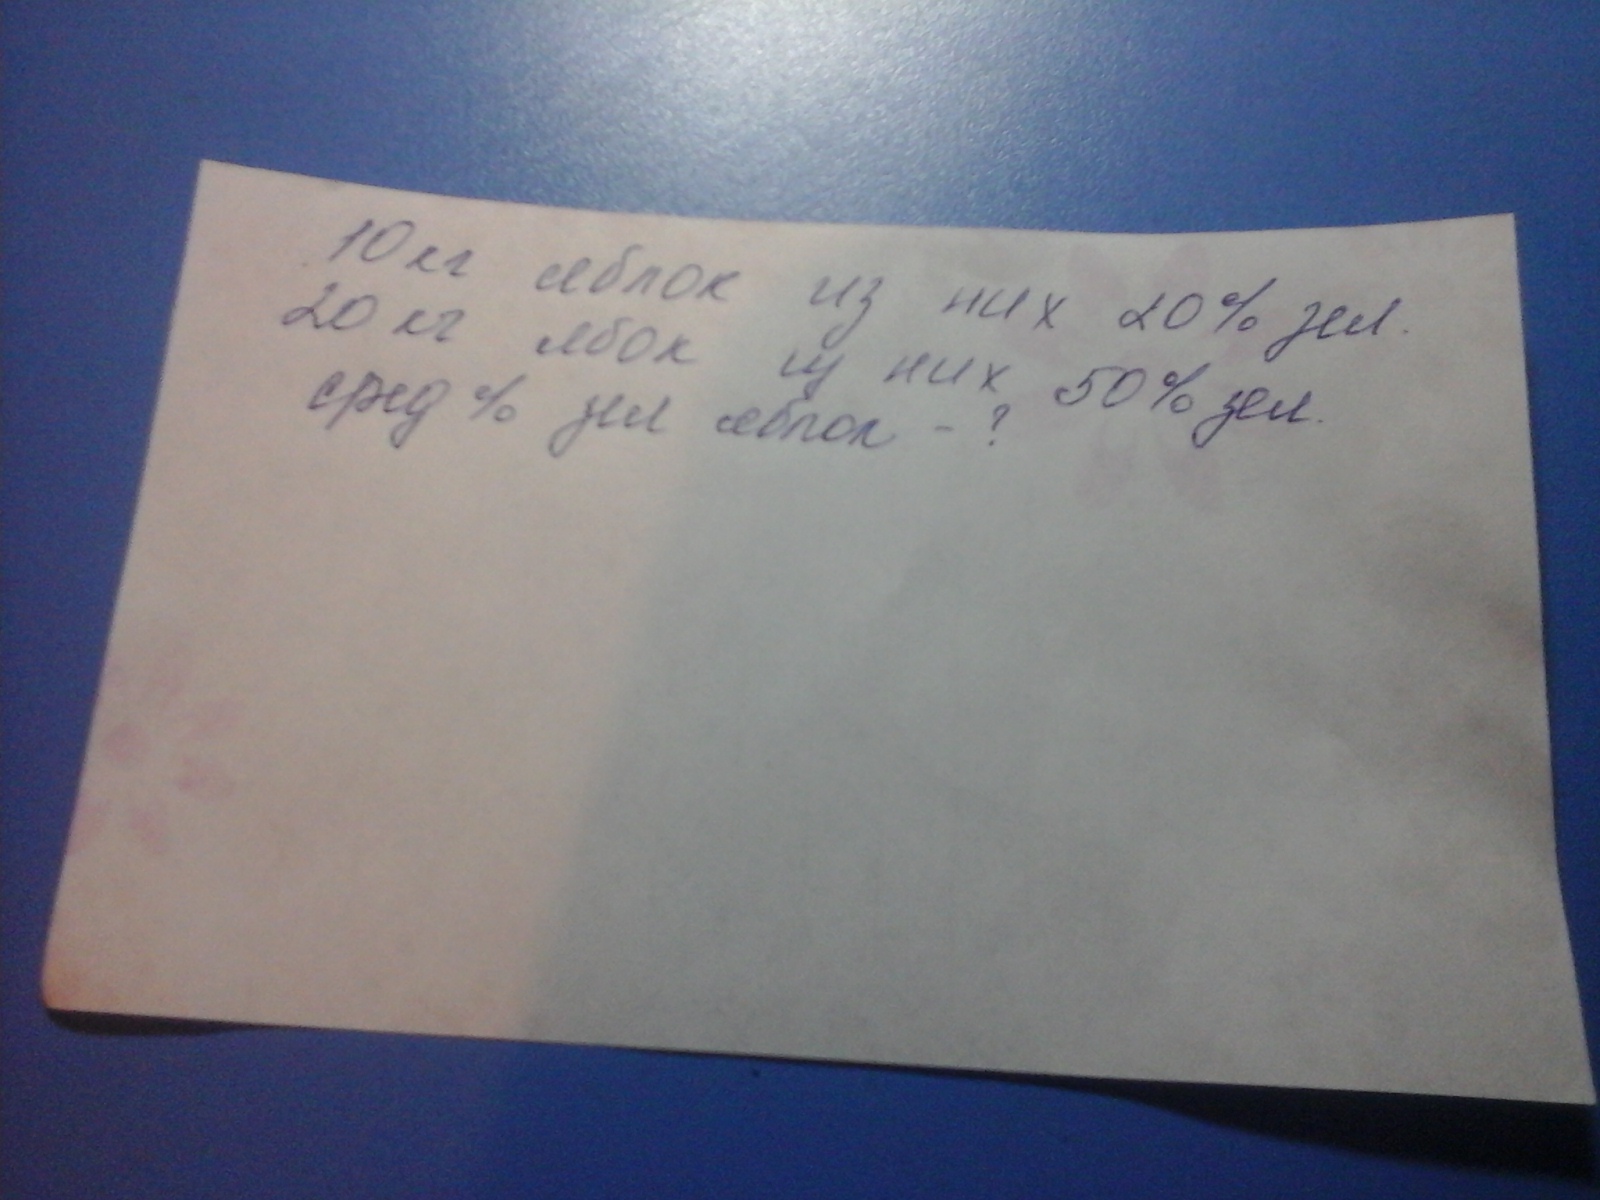 10 кг яблок из них 20% зел.
20 кг ябок из них 50% зел.
сред % зел яблок - ?